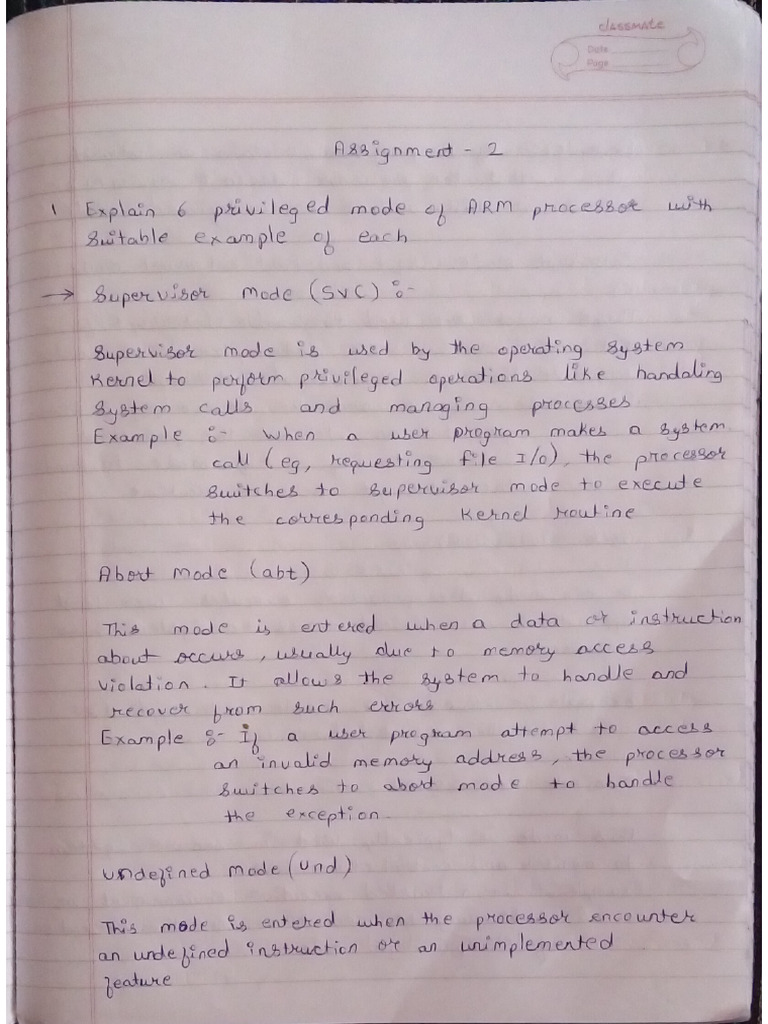 classmate
Date
Page
Assignment - 2
1 Explain 6 privileged mode of ARM processor with
suitable example of each
→ Supervisor mode (SVC) :-
Supervisor mode is used by the operating system
Kernel to perform privileged operations like handaling
system calls and managing processes
Example :- When a user program makes a system
call (eg, requesting file I/O), the processor
switches to supervisor mode to execute
the corresponding Kernel routine
Abort mode (abt)
This mode is entered when a data or instruction
about occurs, usually due to memory access
violation. It allows the system to handle and
recover from such errors
Example :- If a user program attempt to access
an invalid memory address, the processor
switches to abort mode to handle
the exception.
Undefined mode (Und)
This mode is entered when the processor encounter
an undefined instruction or an unimplemented
feature